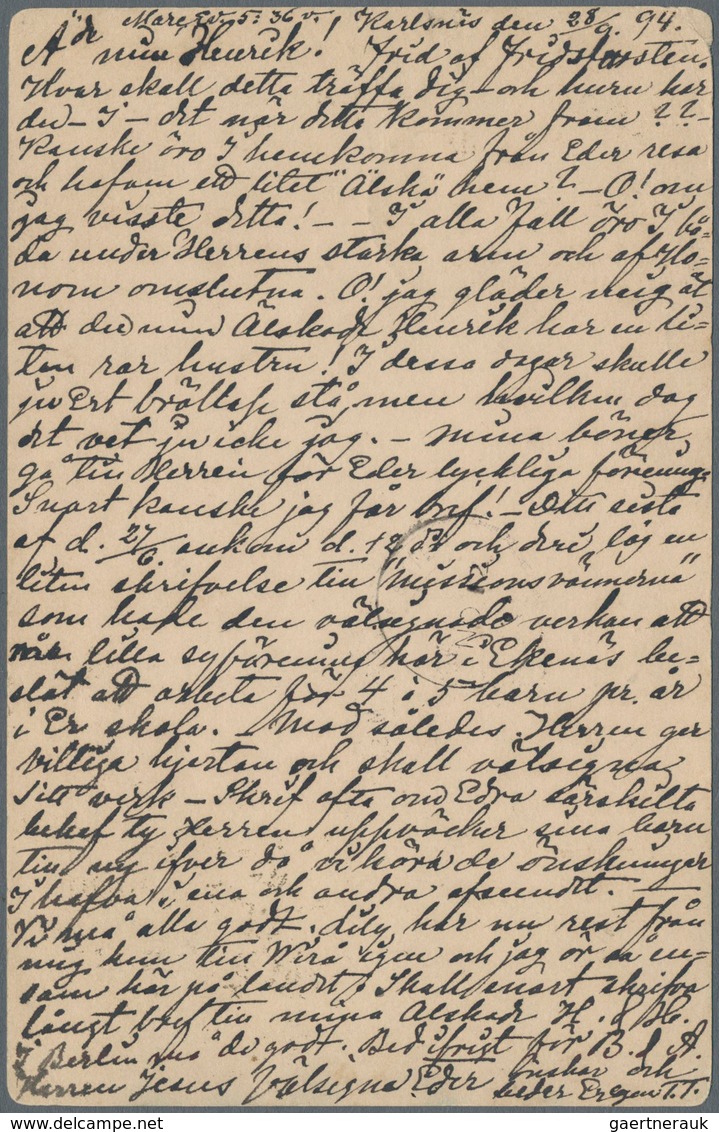 Marc. Ev. 5: 36 v. Karlsnäs den 28/9. 94.
Älskade min Henrik! Frid af Fridsfursten.
Hvar skall detta träffa dig – och huru har
du – I – det när detta kommer fram ? ? –
Kanske äro I hemkomna från Eder resa
och hafven ett litet "Älskä" hem? – O! om
jag visste detta! – – I alla fall äro I bå=
da under Herrens starka arm och af Ho=
nom omslutna. O! jag gläder mig åt
att du min Älskade Henrik har en li=
ten rar hustru! I dessa dagar skulle
ju Ert bröllop stå, men hvilken dag
det vet ju icke jag. – Mina böner
gå till Herren för Eder lyckliga förening.
Snart kanske jag får bref! – Ditt sista
af d. 27/6. ankom d. 12 ds och deri låg en
liten skrifvelse till "Missionsvännerna"
som hade den välsignade verkan att
vår lilla syförening här i Ekenäs be=
slöt att arbeta för 4 à 5 barn pr. år
i Er skola. – Mod således. Herren ger
villiga hjertan och skall välsigna
sitt verk – Skrif ofta om Edra särskilta
behof ty Herren uppväcker sina barn
till ny ifver då vi höra de önskningar
I hafva i ena och andra afseendet. –
Vi må alla godt. Lily har nu rest från
mig hem till Wirå igen och jag är så en=
sam här på landet. Skall snart skrifva
långt bref till mina Älskade H. & H.
I Berlin må de godt. Bed ifrigt för B. & A.
Herren Jesus Välsigne Eder önskar och
beder Er egen T. T.
gaertnerauk